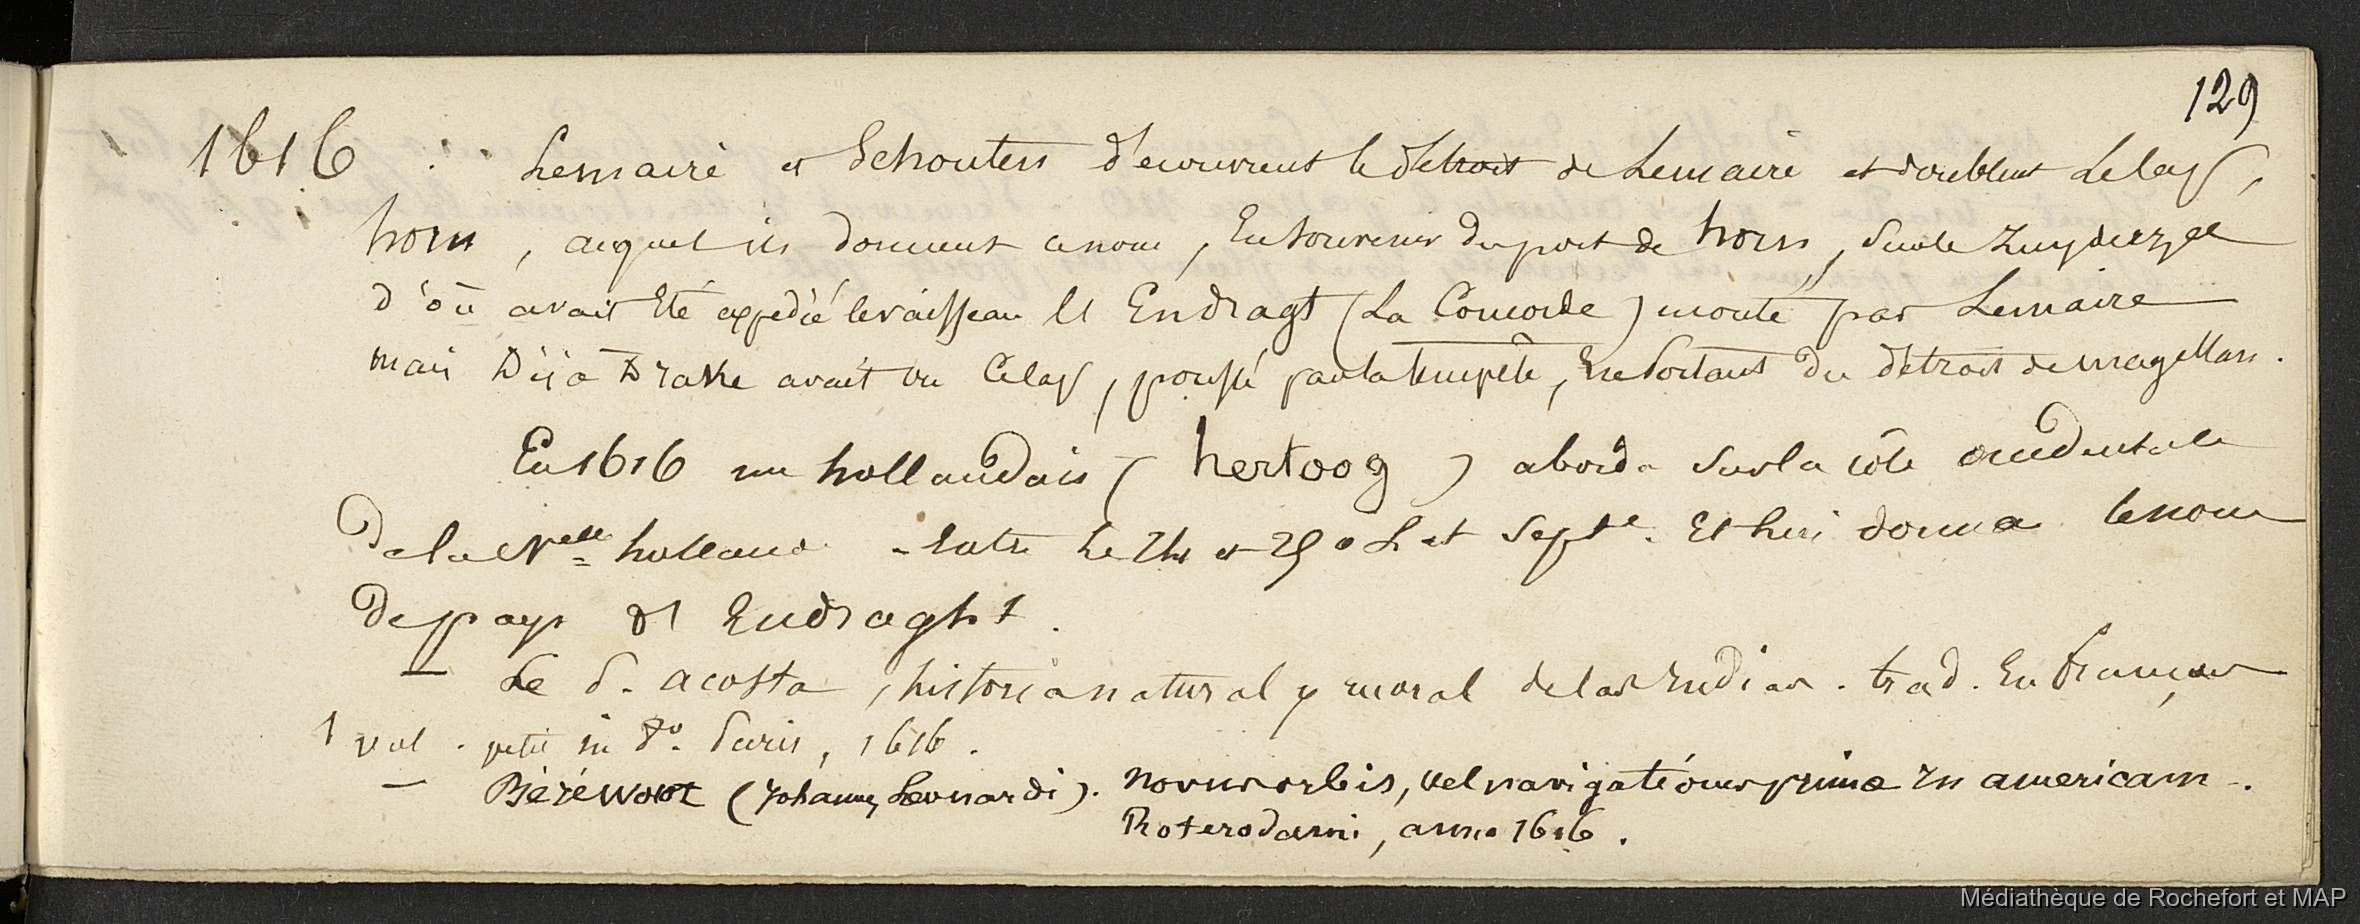 129
1616 Lemaire et Schouten découvrent le détroit de Lemaire et doublent le Cap,
horn, auquel ils donnent ce nom, En souvenir du port de horn, sur le Zuyderzée
d'où avait Eté expédié le vaisseau El Endragt (La Concorde) monté par Lemaire
mais Déjà Drake avait vu Ce Cap, poussé par la tempête, En sortant du détroit de magellan.
En 1616 un hollandais (hertoog) aborda sur la côte occidentale
De la Nelle hollande. Entre le 24 et 25° L et Septe. Et lui donna le nom
De pays d'Endraght.
— Le d. acosta, historia natural y moral de las Indias. trad. En français
1 vol. petit in 8°. Paris, 1616.
— Béréwout (Johannes Leonardi). Novus orbis, vel navigationes primæ In americam.
Roterodami, anno 1616.
Médiathèque de Rochefort et MAP